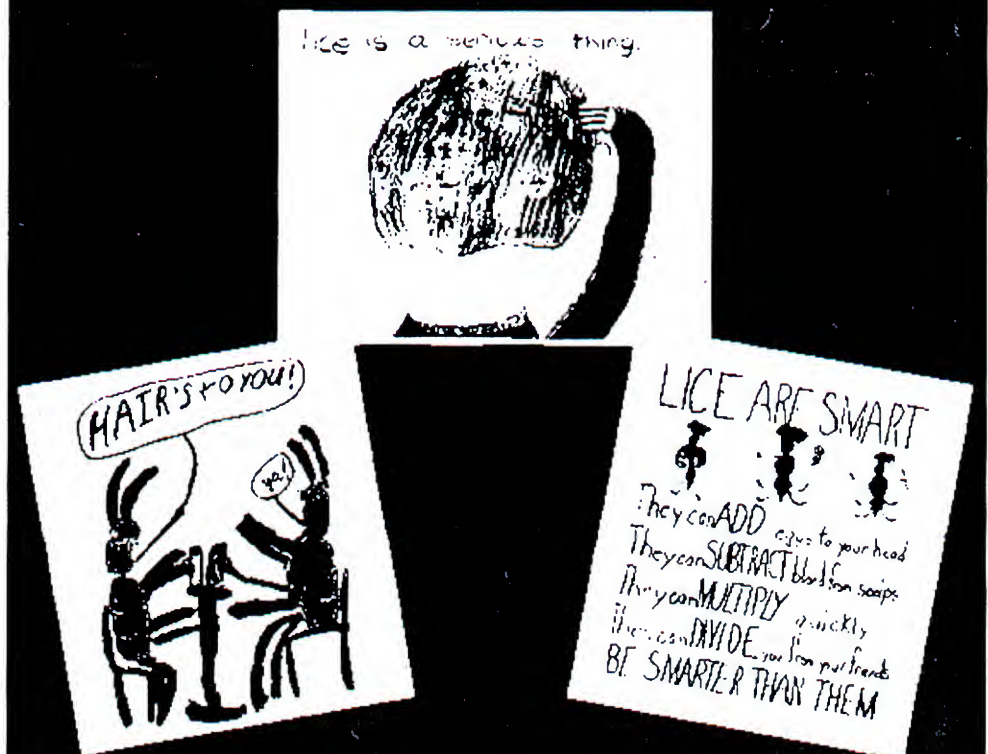 lice is a serious thing.
HAIR'S to YOU!
ya!
LICE ARE SMART
They can ADD eggs to your head
They can SUBTRACT blood from scalps
They can MULTIPLY quickly
They can DIVIDE you from your friends
BE SMARTER THAN THEM